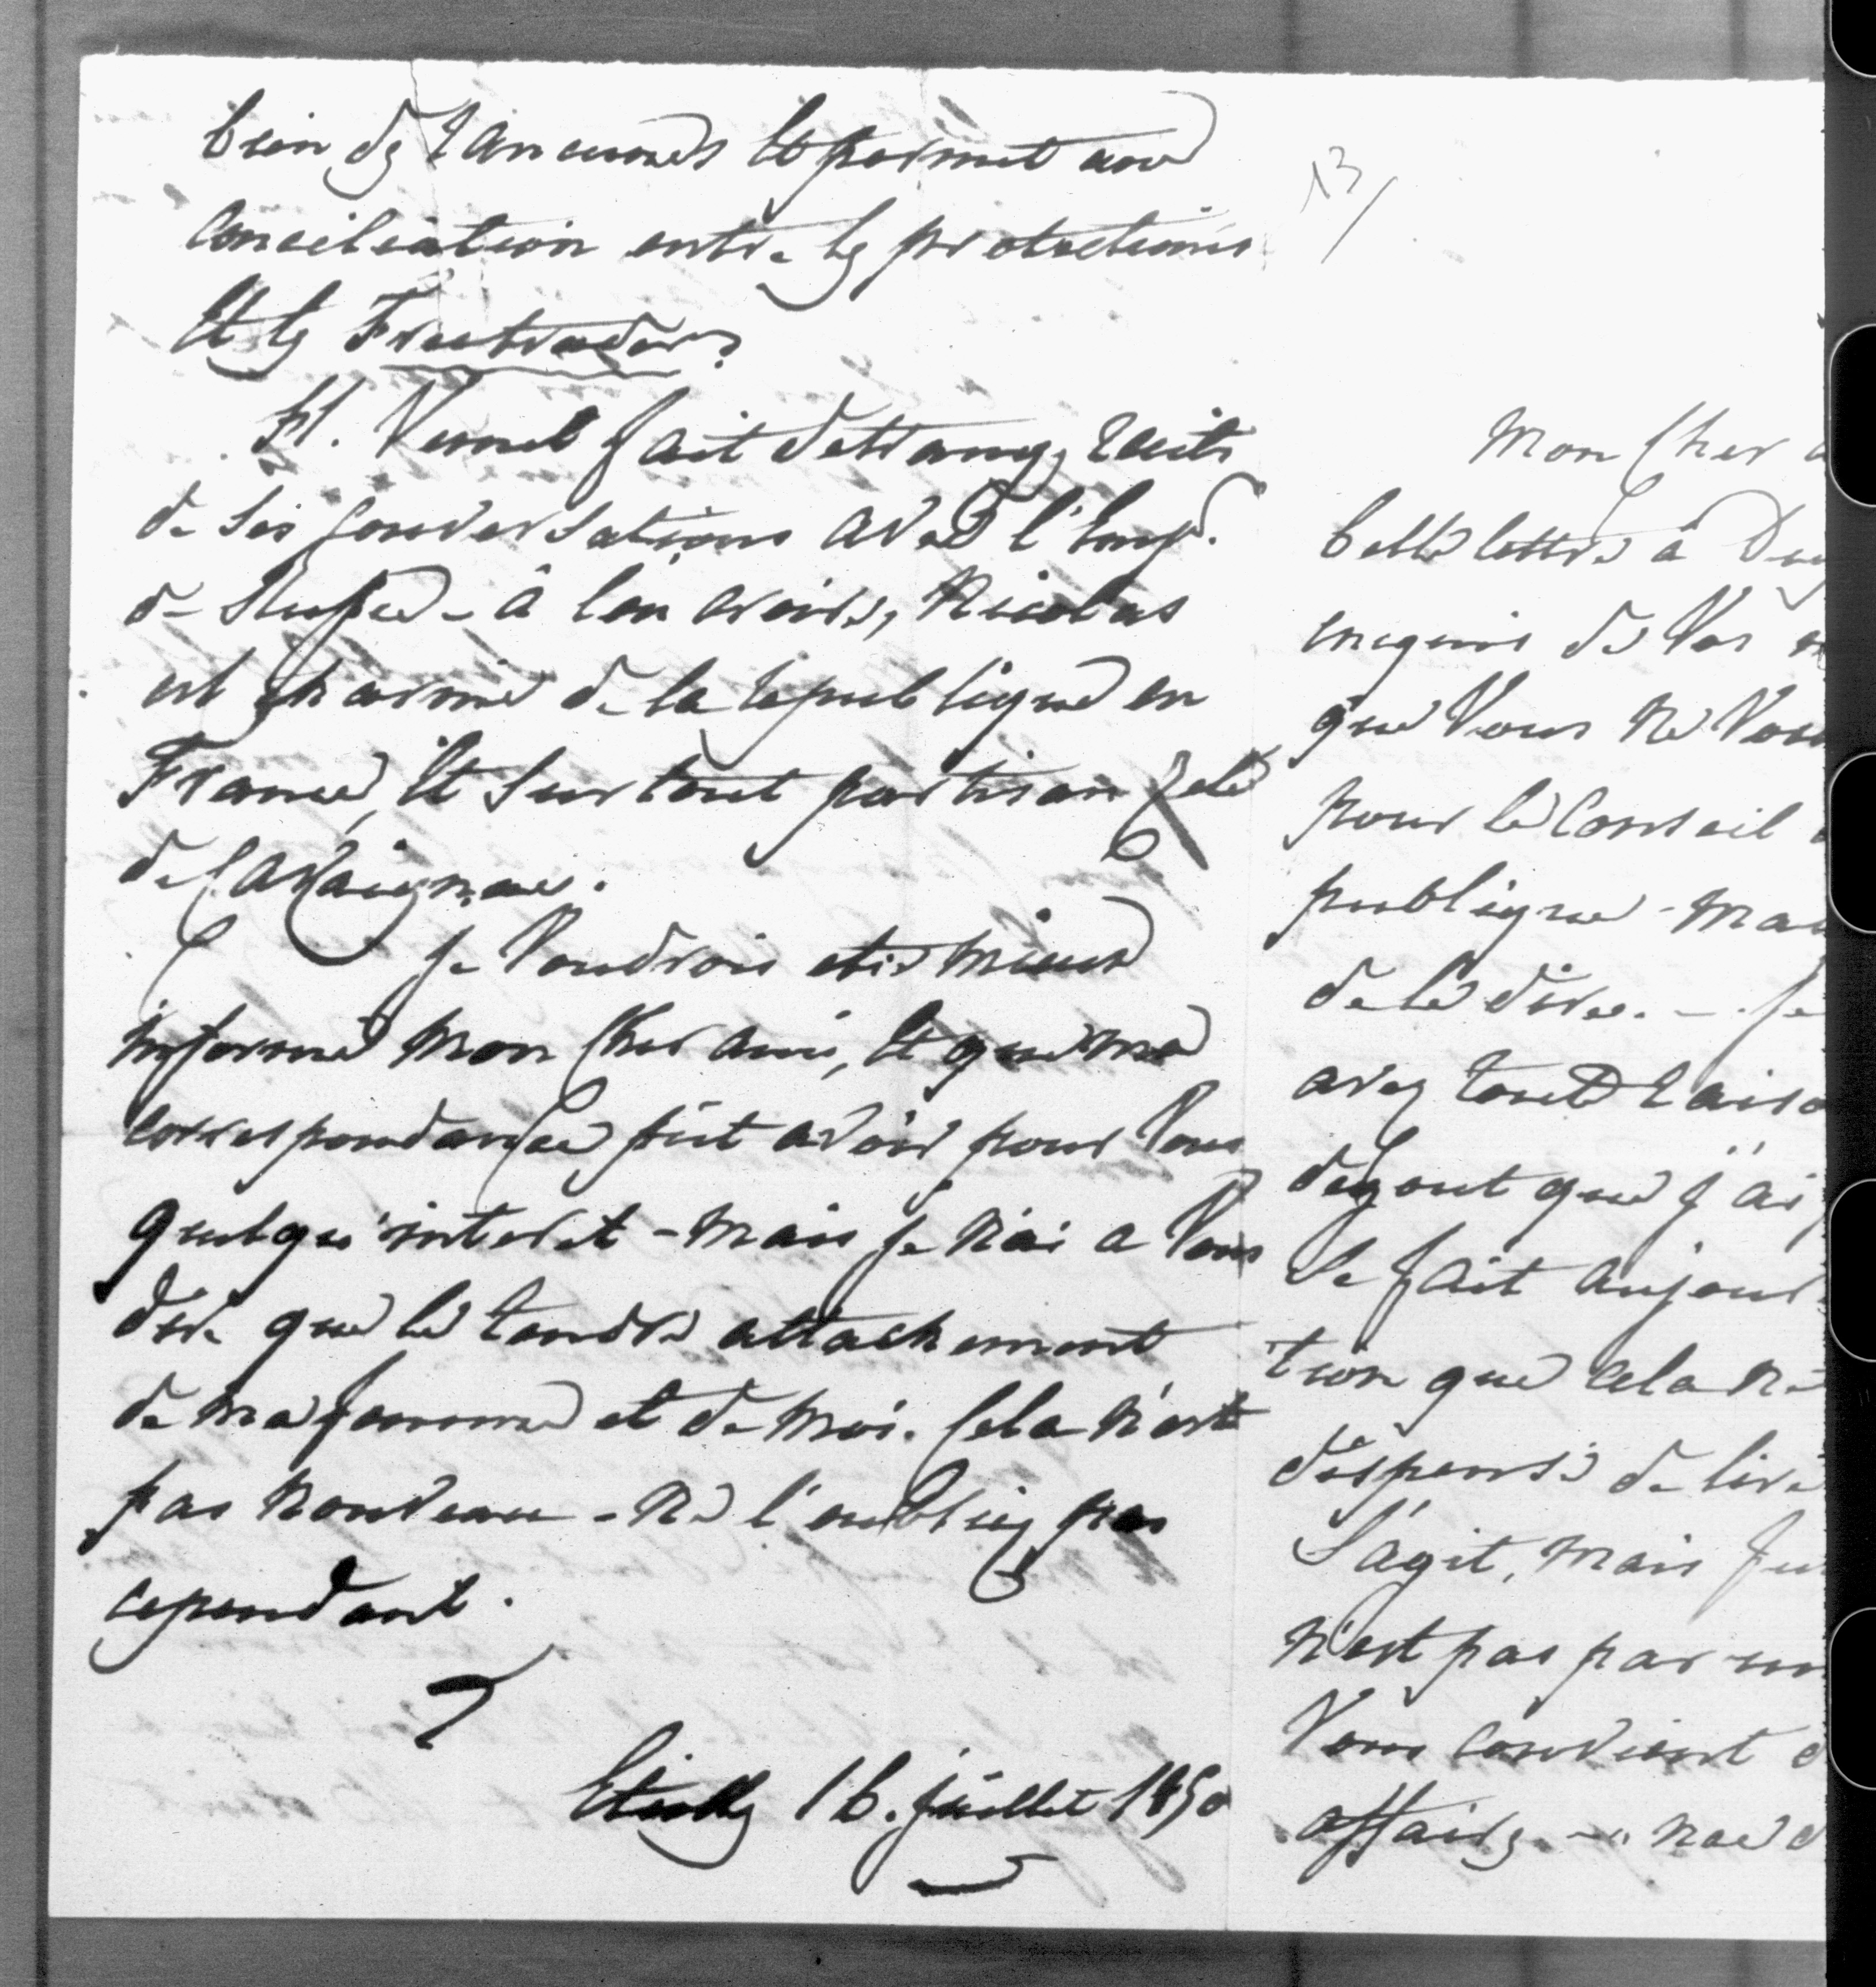 bien des rancunes et permet une
conciliation entre les protectionis
et les Freetraders.
H. Vernet fait d'etranges recits
de ses conversations avec l'Emp.
de Russie - à l'en croire, Nicolas
est charmé de la republique en
France, et surtout partisan zelé
de Cavaignac.
je voudrois etre mieux
informé mon cher ami, et que ma
correspondance pût avoir pour vous
quelqu'interet - mais je n'ai a vous
dire que le tendre attachement
de ma femme et de moi. Cela n'est
pas nouveau - ne l'oubliez pas
cependant.
16. juillet 1850
13/
Mon cher
belle lettre à
enquis de vos
que vous ne
pour le conseil
publique - mai
de le dire. - je
avez toute raiso
degout que j'ai
se fait aujour
tion que cela ne
dispense de lire
s'agit, mais
n'est pas par un
vous convient
affaires